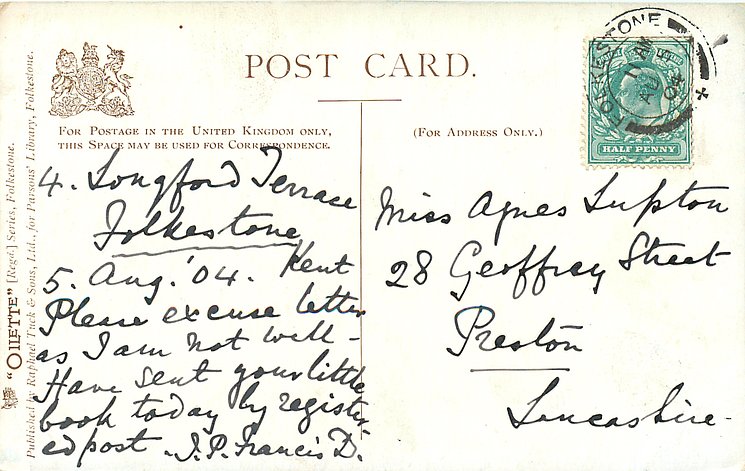 POST CARD.
FOR POSTAGE IN THE UNITED KINGDOM ONLY,
THIS SPACE MAY BE USED FOR CORRESPONDENCE.
(FOR ADDRESS ONLY.)
"OILETTE" [Regd.] Series, Folkestone.
Published by Raphael Tuck & Sons, Ltd., for Parsons' Library, Folkestone.
FOLKESTONE
11 AM
AU 5
04
HALF PENNY
4. Longford Terrace
Folkestone
5. Aug. '04. Kent
Please excuse letter
as I am not well -
Have sent your little
book today by register-
ed post. J.P. Francis D.
Miss Agnes Lupton
28 Geoffrey Street
Preston
Lancashire -